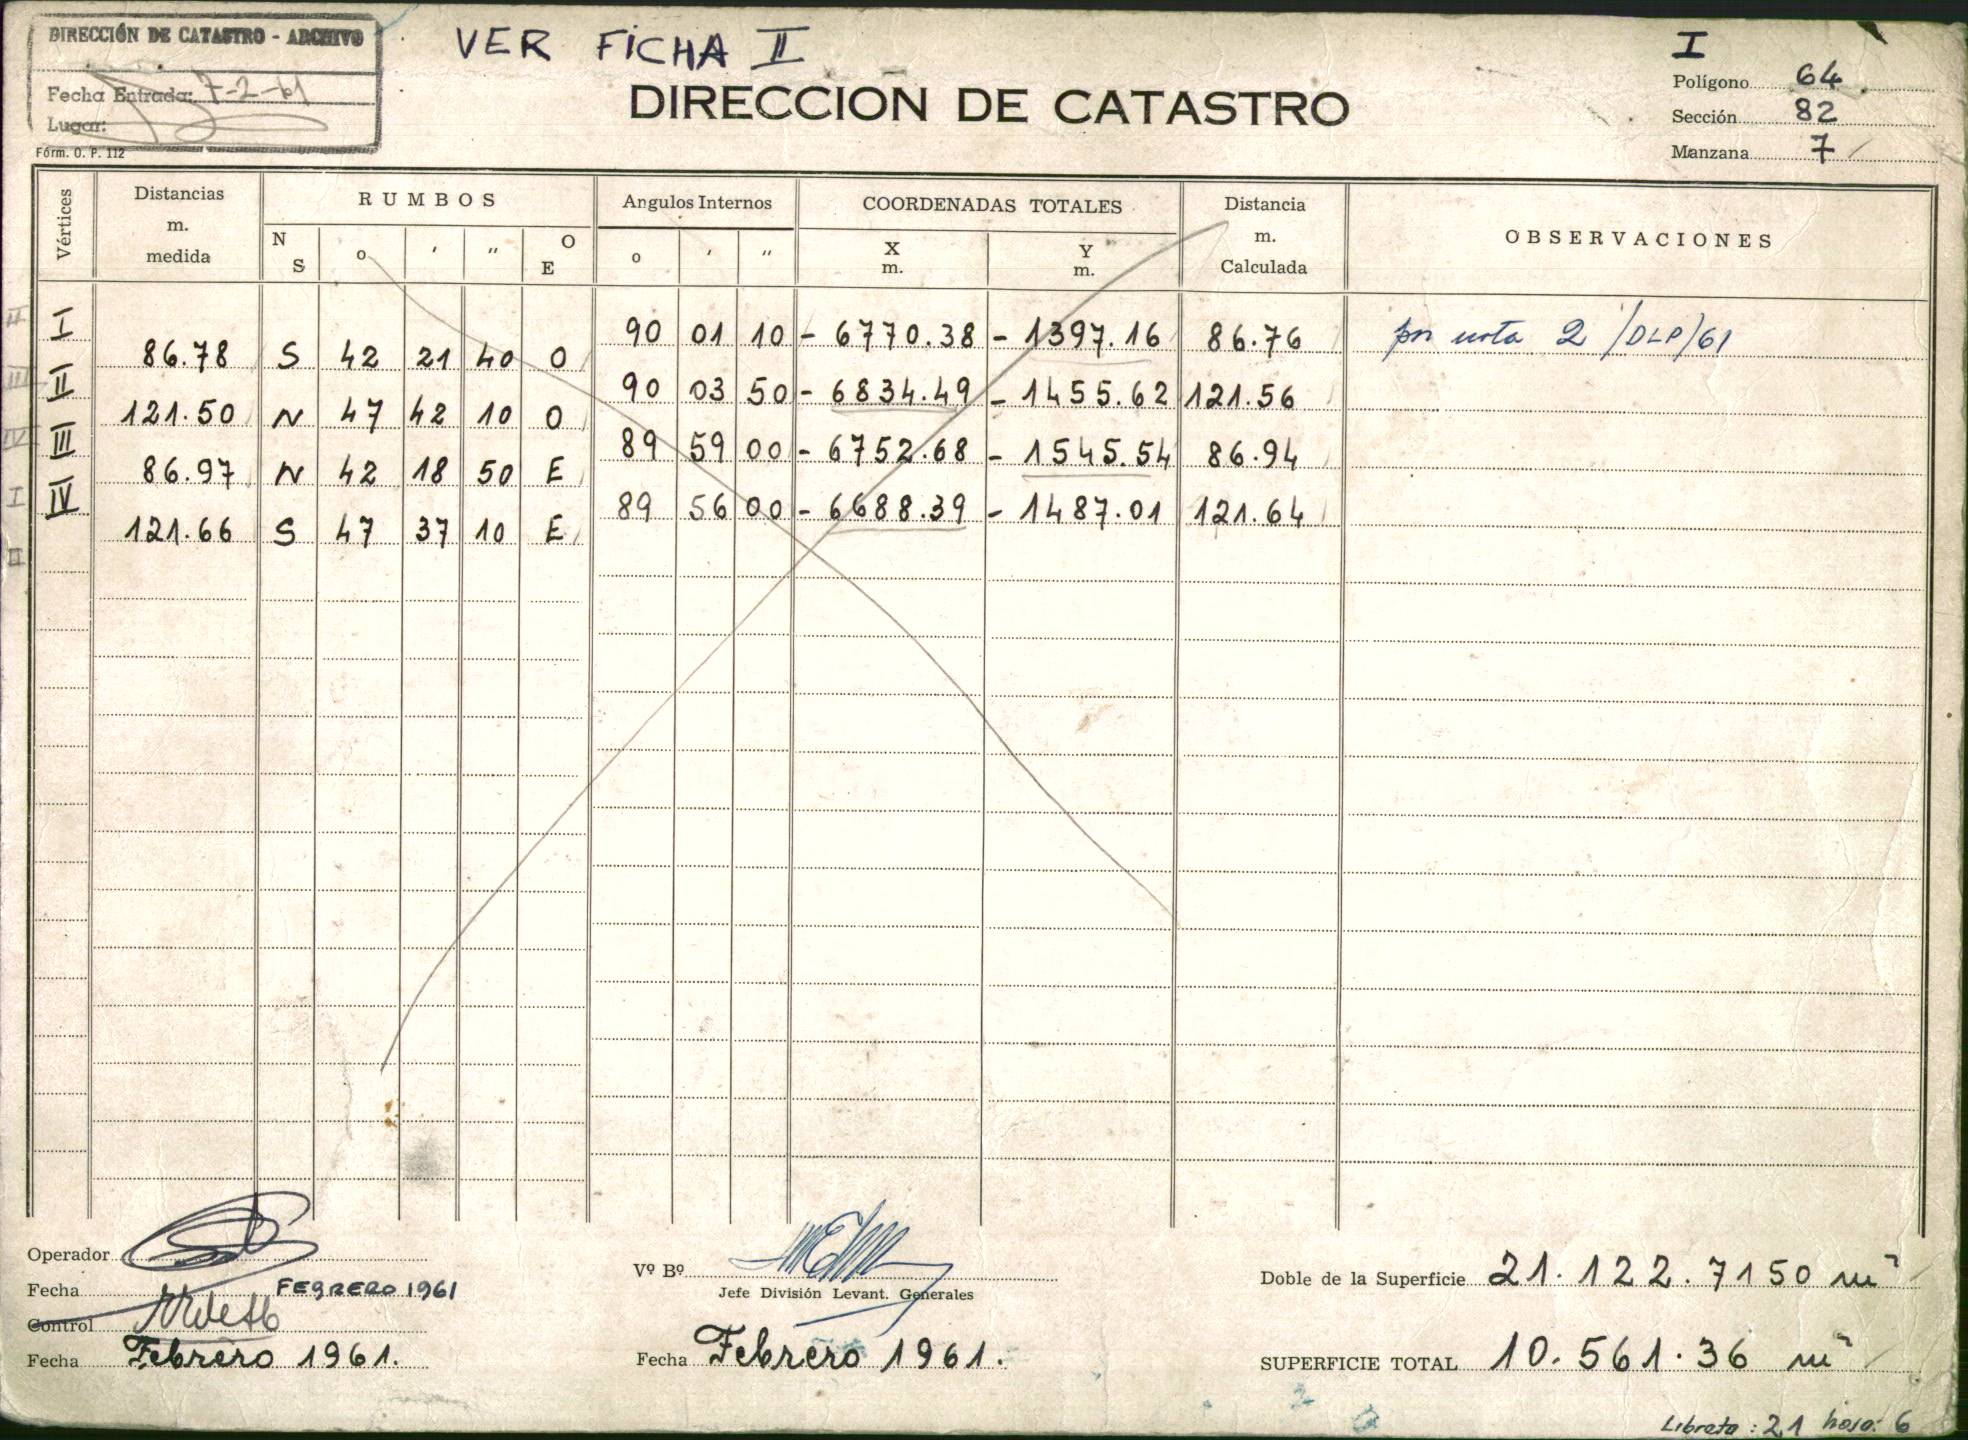 DIRECCIÓN DE CATASTRO - ARCHIVO
Fecha Entrada: 7-2-61
Lugar:
Fórm. O. P. 112
VER FICHA II
DIRECCION DE CATASTRO
I
Polígono 64
Sección 82
Manzana 7
Vértices
Distancias m. medida
RUMBOS
N S o ' " O E
Angulos Internos
o ' "
COORDENADAS TOTALES
X m. Y m.
Distancia m. Calculada
OBSERVACIONES
II I 90 01 10 - 6770.38 - 1397.16 86.76 por nota 2 /DLP/61
86.78 S 42 21 40 O
III II 90 03 50 - 6834.49 - 1455.62 121.56
121.50 N 47 42 10 O
IV III 89 59 00 - 6752.68 - 1545.54 86.94
86.97 N 42 18 50 E
I IV 89 56 00 - 6688.39 - 1487.01 121.64
121.66 S 47 37 10 E
II
Operador
Fecha FEBRERO 1961
Control
Fecha Febrero 1961.
Vº Bº
Jefe División Levant. Generales
Fecha Febrero 1961.
Doble de la Superficie 21.122.7150 m²
SUPERFICIE TOTAL 10.561.36 m²
Libreta: 21 hoja: 6